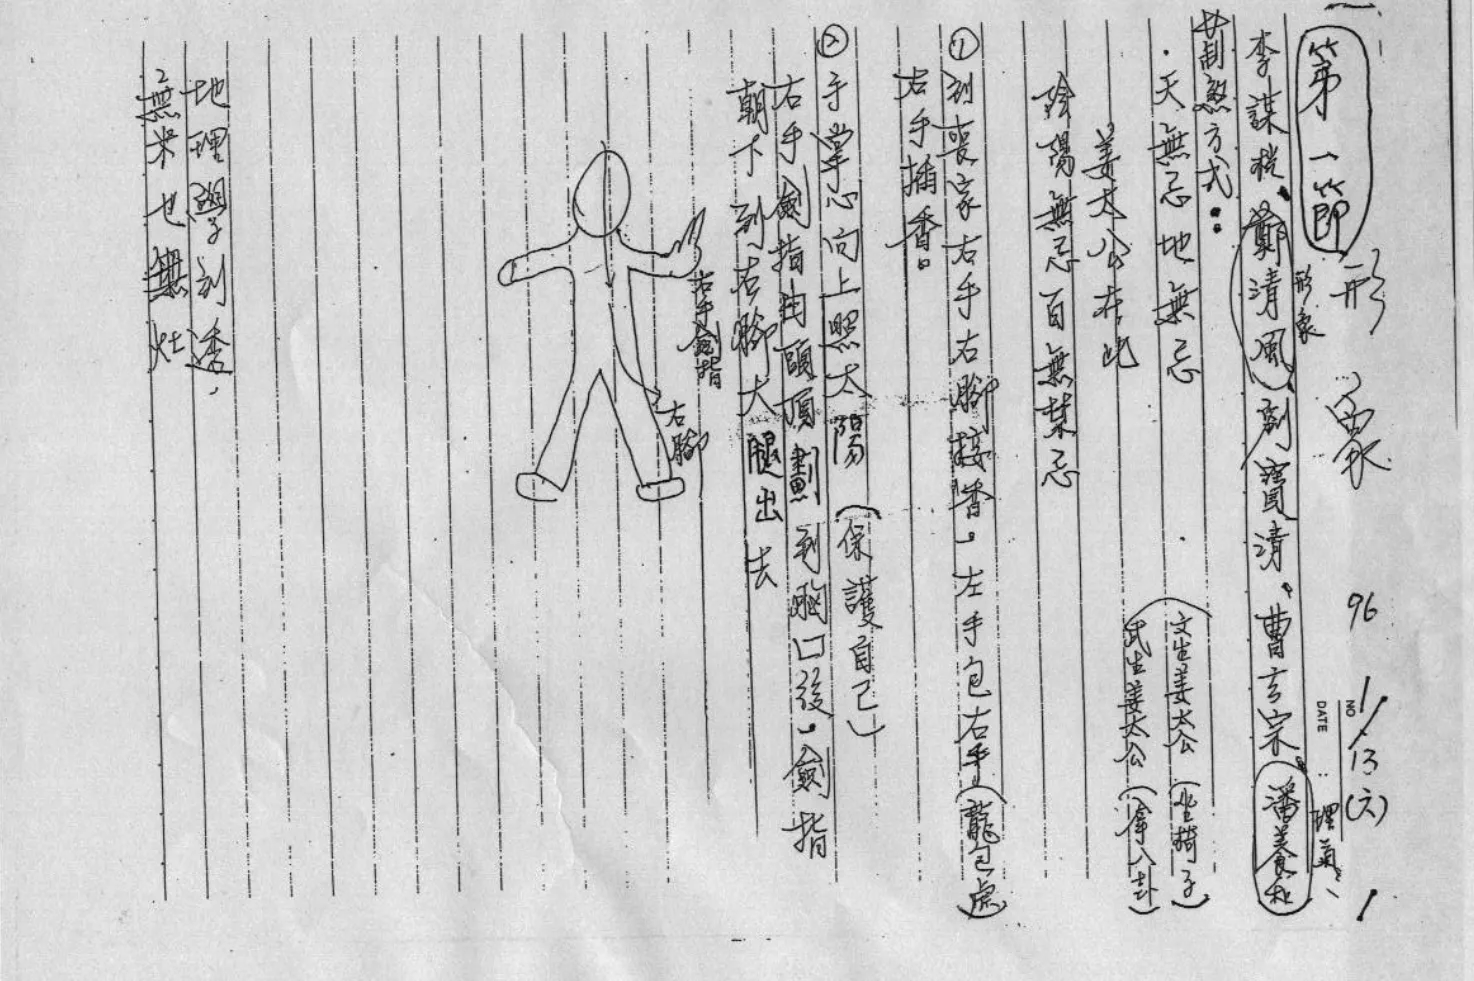 第一節 形象 96 1/13(六)
NO
DATE
1
李謀稅、鄭清風、劉寶清。曹玄宗、潘養和
形象
理氣
制煞方式:
·天無忌地無忌
姜太公在此
陰陽無忌百無禁忌
文生姜太公(坐椅子)
武生姜太公(拿八卦)
①到喪家右手右腳接香。左手包右手(龍包虎)
右手插香。
②手掌心向上照太陽(保護自己)
右手劍指由頭頂劃到胸口後,劍指
朝下到右腳大腿出去
右手劍指
右腳
地理學到透,
無米也無灶